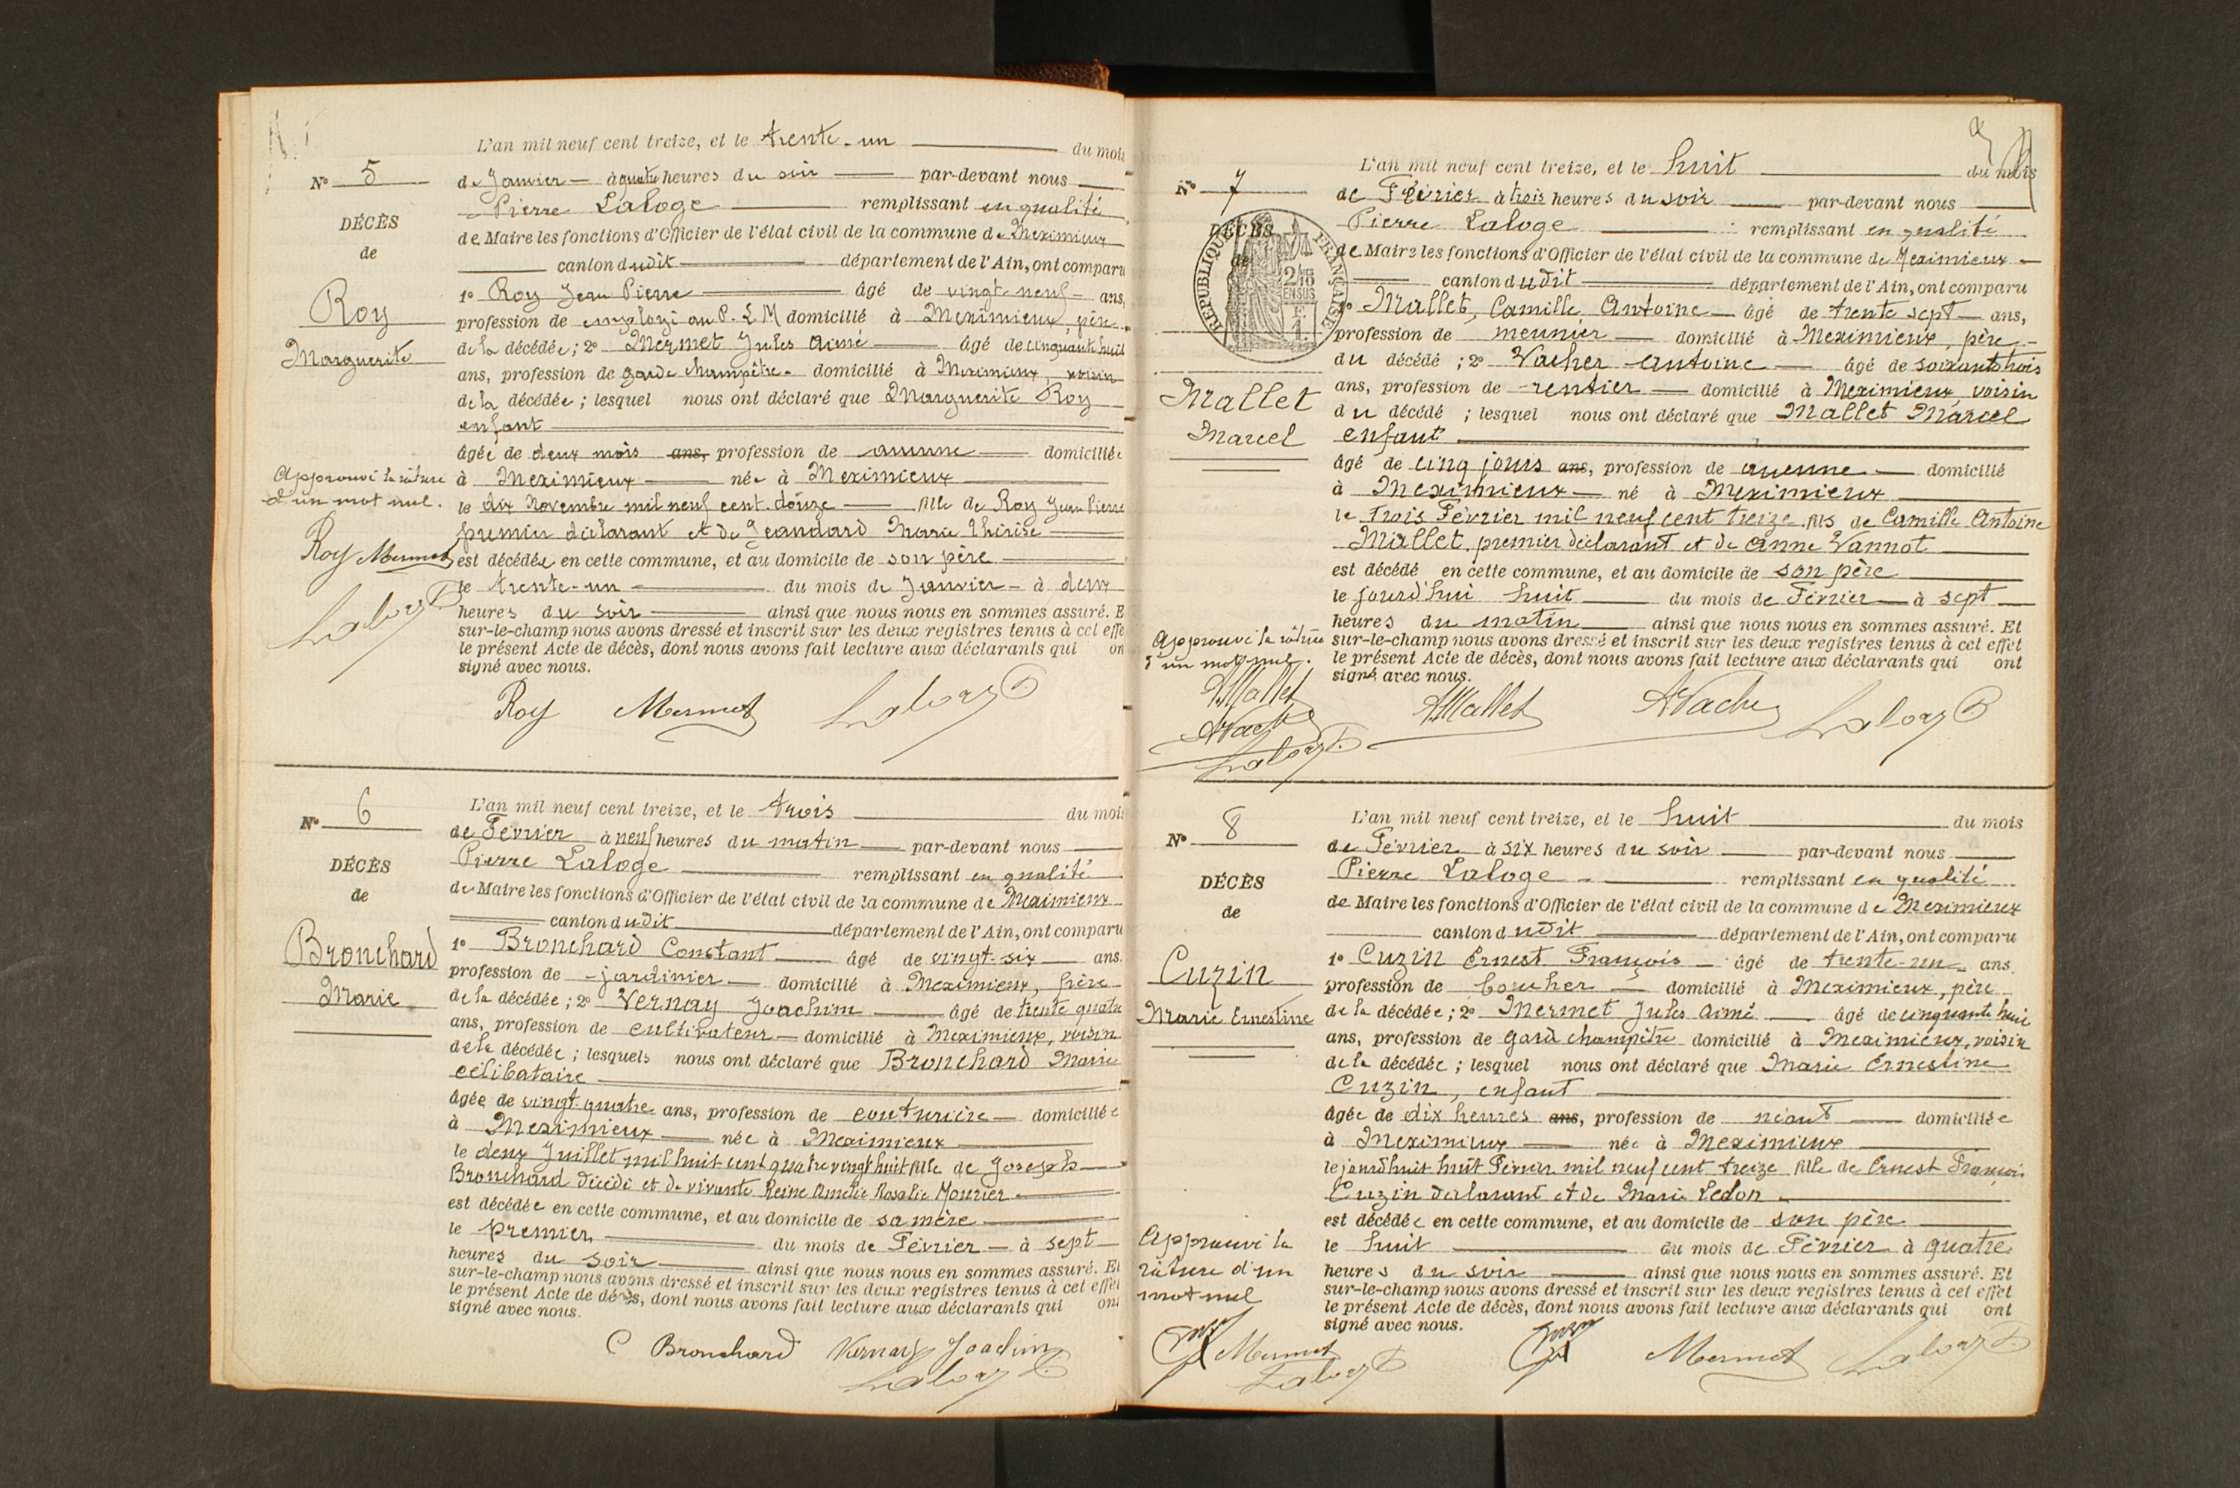 L'an mil neuf cent treize, et le trente-un du mois
N° 5
de Janvier à quatre heures du soir par-devant nous
Pierre Laloge remplissant en qualité
DÉCÈS
de Maire les fonctions d'Officier de l'état civil de la commune de Meximieux
de
canton dudit département de l'Ain, ont comparu
1° Roy Jean Pierre âgé de vingt neuf ans,
Roy
profession de employé au P. L M domicilié à Meximieux, père
Marguerite
de la décédée; 2° Mermet Jules Aimé âgé de cinquante huit
ans, profession de garde champêtre domicilié à Meximieux, voisin
de la décédée; lesquel nous ont déclaré que Marguerite Roy
enfant
âgée de deux mois ans, profession de aucune domiciliée
à Meximieux née à Meximieux
Approuvé la râture
d'un mot nul.
le dix Novembre mil neuf cent douze fille de Roy Jean Pierre
premier déclarant et de Jeandard Marie Thérèse
Roy Mermet
est décédée en cette commune, et au domicile de son père
le trente-un du mois de Janvier à deux
Laloge P
heures du soir ainsi que nous nous en sommes assuré. E
sur-le-champ nous avons dressé et inscrit sur les deux registres tenus à cet effe
le présent Acte de décès, dont nous avons fait lecture aux déclarants qui on
signé avec nous.
Roy Mermet Laloge P
L'an mil neuf cent treize, et le trois du mois
N° 6
de Février à neuf heures du matin par-devant nous
Pierre Laloge remplissant en qualité
DÉCÈS
de Maire les fonctions d'Officier de l'état civil de la commune de Meximieux
de
canton dudit département de l'Ain, ont comparu
1° Bronchard Constant âgé de vingt-six ans.
Bronchard
profession de jardinier domicilié à Meximieux, frère
Marie
de la décédée; 2° Vernay Joachim âgé de trente quatre
ans, profession de cultivateur domicilié à Meximieux, voisin
de la décédée; lesquels nous ont déclaré que Bronchard Marie
célibataire
âgée de vingt-quatre ans, profession de couturière domiciliée
à Meximieux née à Meximieux
le deux Juillet mil huit cent quatre vingt huit fille de Joseph
Bronchard décédé et de vivante Reine Amélie Rosalie Mourier
est décédée en cette commune, et au domicile de sa mère
le premier du mois de Février à sept
heures du soir ainsi que nous nous en sommes assuré. Et
sur-le-champ nous avons dressé et inscrit sur les deux registres tenus à cet effet
le présent Acte de décès, dont nous avons fait lecture aux déclarants qui ont
signé avec nous.
C Bronchard Vernay Joachim
Laloge P
L'an mil neuf cent treize, et le huit du mois
N° 7
de Février à trois heures du soir par-devant nous
Pierre Laloge remplissant en qualité
DÉCÈS
de
RÉPUBLIQUE FRANÇAISE
de Maire les fonctions d'Officier de l'état civil de la commune de Meximieux
canton dudit département de l'Ain, ont comparu
1° Mallet, Camille Antoine âgé de trente sept ans,
profession de meunier domicilié à Meximieux, père
du décédé; 2° Vacher Antoine âgé de soixante trois
Mallet
ans, profession de rentier domicilié à Meximieux voisin
du décédé; lesquel nous ont déclaré que Mallet Marcel
Marcel
enfant
âgé de cinq jours ans, profession de aucune domicilié
à Meximieux né à Meximieux
le trois Février mil neuf cent treize fils de Camille Antoine
Mallet premier déclarant et de Anne Vannot
est décédé en cette commune, et au domicile de son père
le jourd'hui huit du mois de Février à sept
heures du matin ainsi que nous nous en sommes assuré. Et
Approuvé la râture
d'un mot nul.
sur-le-champ nous avons dressé et inscrit sur les deux registres tenus à cet effet
le présent Acte de décès, dont nous avons fait lecture aux déclarants qui ont
signé avec nous.
AMallet
AVacher
Laloge P.
AMallet AVacher Laloge P
L'an mil neuf cent treize, et le huit du mois
N° 8
de Février à six heures du soir par-devant nous
Pierre Laloge remplissant en qualité
DÉCÈS
de Maire les fonctions d'Officier de l'état civil de la commune de Meximieux
de
canton dudit département de l'Ain, ont comparu
1° Cuzin Ernest François âgé de trente-un ans
Cuzin
profession de boucher domicilié à Meximieux, père
Marie Ernestine
de la décédée; 2° Mermet Jules Aimé âgé de cinquante huit
ans, profession de gard champêtre domicilié à Meximieux, voisin
de la décédée; lesquel nous ont déclaré que Marie Ernestine
Cuzin, enfant
âgée de dix heures ans, profession de néant domiciliée
à Meximieux née à Meximieux
le jourd'huit huit Février mil neuf cent treize fille de Ernest François
Cuzin déclarant et de Marie Ledon
est décédée en cette commune, et au domicile de son père
Approuvé la
râture d'un
mot nul
le huit du mois de Février à quatre
heures du soir ainsi que nous nous en sommes assuré. Et
sur-le-champ nous avons dressé et inscrit sur les deux registres tenus à cet effet
le présent Acte de décès, dont nous avons fait lecture aux déclarants qui ont
signé avec nous.
Mermet
Laloge P
Mermet Laloge P.